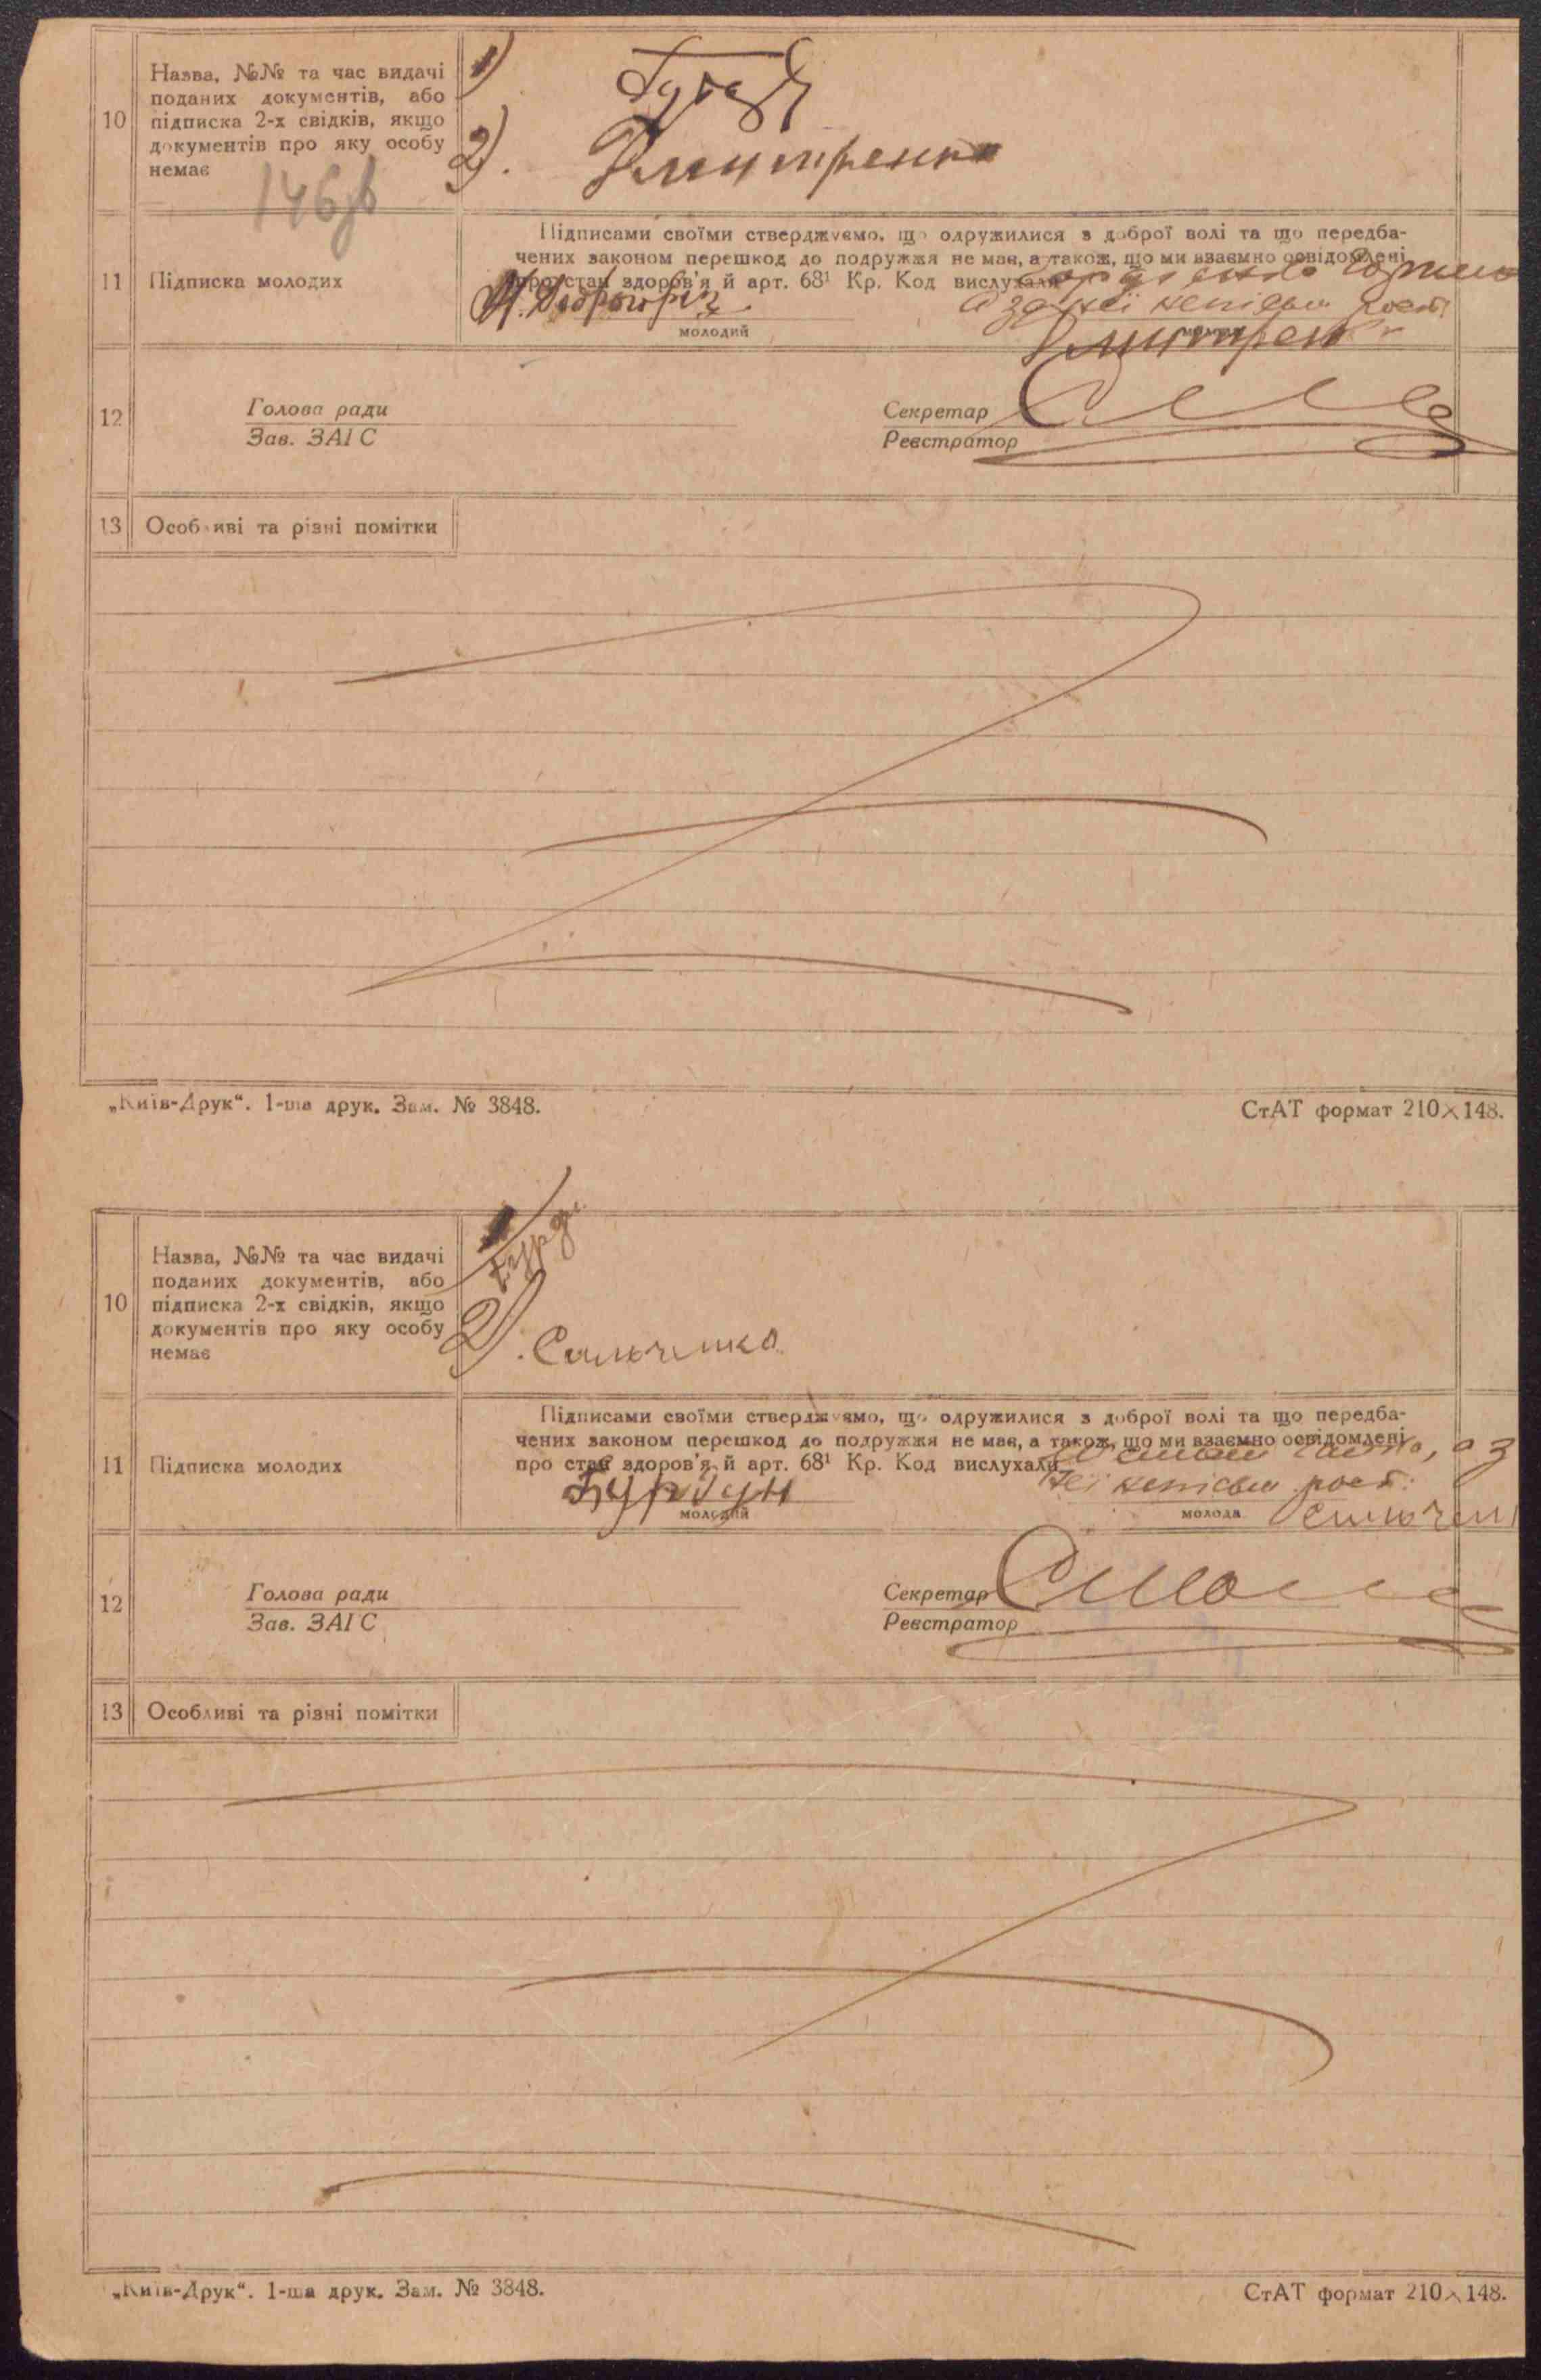 10
Назва, №№ та час видачі
поданих документів, або
підписка 2-х свідків, якщо
документів про яку особу
немає
1)
2).
Дмитренко
146
11
Підписка молодих
Підписами своїми стверджуємо, що одружилися з доброї волі та що передба-
чених законом перешкод до подружжя не має, а також, що ми взаємно освідомлені
про стан здоров'я й арт. 68¹ Кр. Код вислухали
а за неї
молодий
молода
Дмитренко
12
Голова ради
Зав. ЗАГС
Секретар
Реєстратор
13
Особливі та різні помітки
„Київ-Друк“. 1-ша друк. Зам. № 3848.
СтАТ формат 210×148.
10
Назва, №№ та час видачі
поданих документів, або
підписка 2-х свідків, якщо
документів про яку особу
немає
2).
11
Підписка молодих
Підписами своїми стверджуємо, що одружилися з доброї волі та що передба-
чених законом перешкод до подружжя не має, а також, що ми взаємно освідомлені
про стан здоров'я й арт. 68¹ Кр. Код вислухали
, а з
неї
молодий
молода
12
Голова ради
Зав. ЗАГС
Секретар
Реєстратор
13
Особливі та різні помітки
„Київ-Друк“. 1-ша друк. Зам. № 3848.
СтАТ формат 210×148.